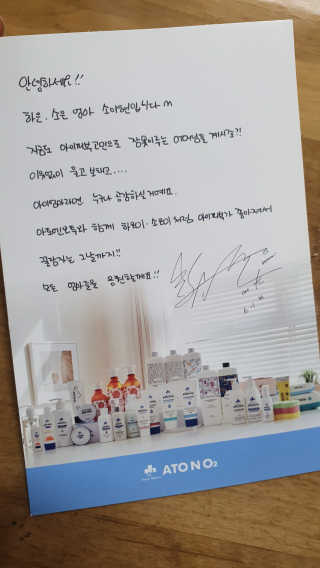 안녕하세요!!
하은, 소은 엄마 소이현입니다 m
지금도 아이피부고민으로 잠못이루는 어머님들 계시죠?!
아이엄마라면 누구나 공감하실 거예요.
아토엔오투와 함께 하은이·소은이처럼 아이피부가 좋아져서
꿀잠자는 그날까지!!
모든 엄마들을 응원할게요!!
ATO N O2